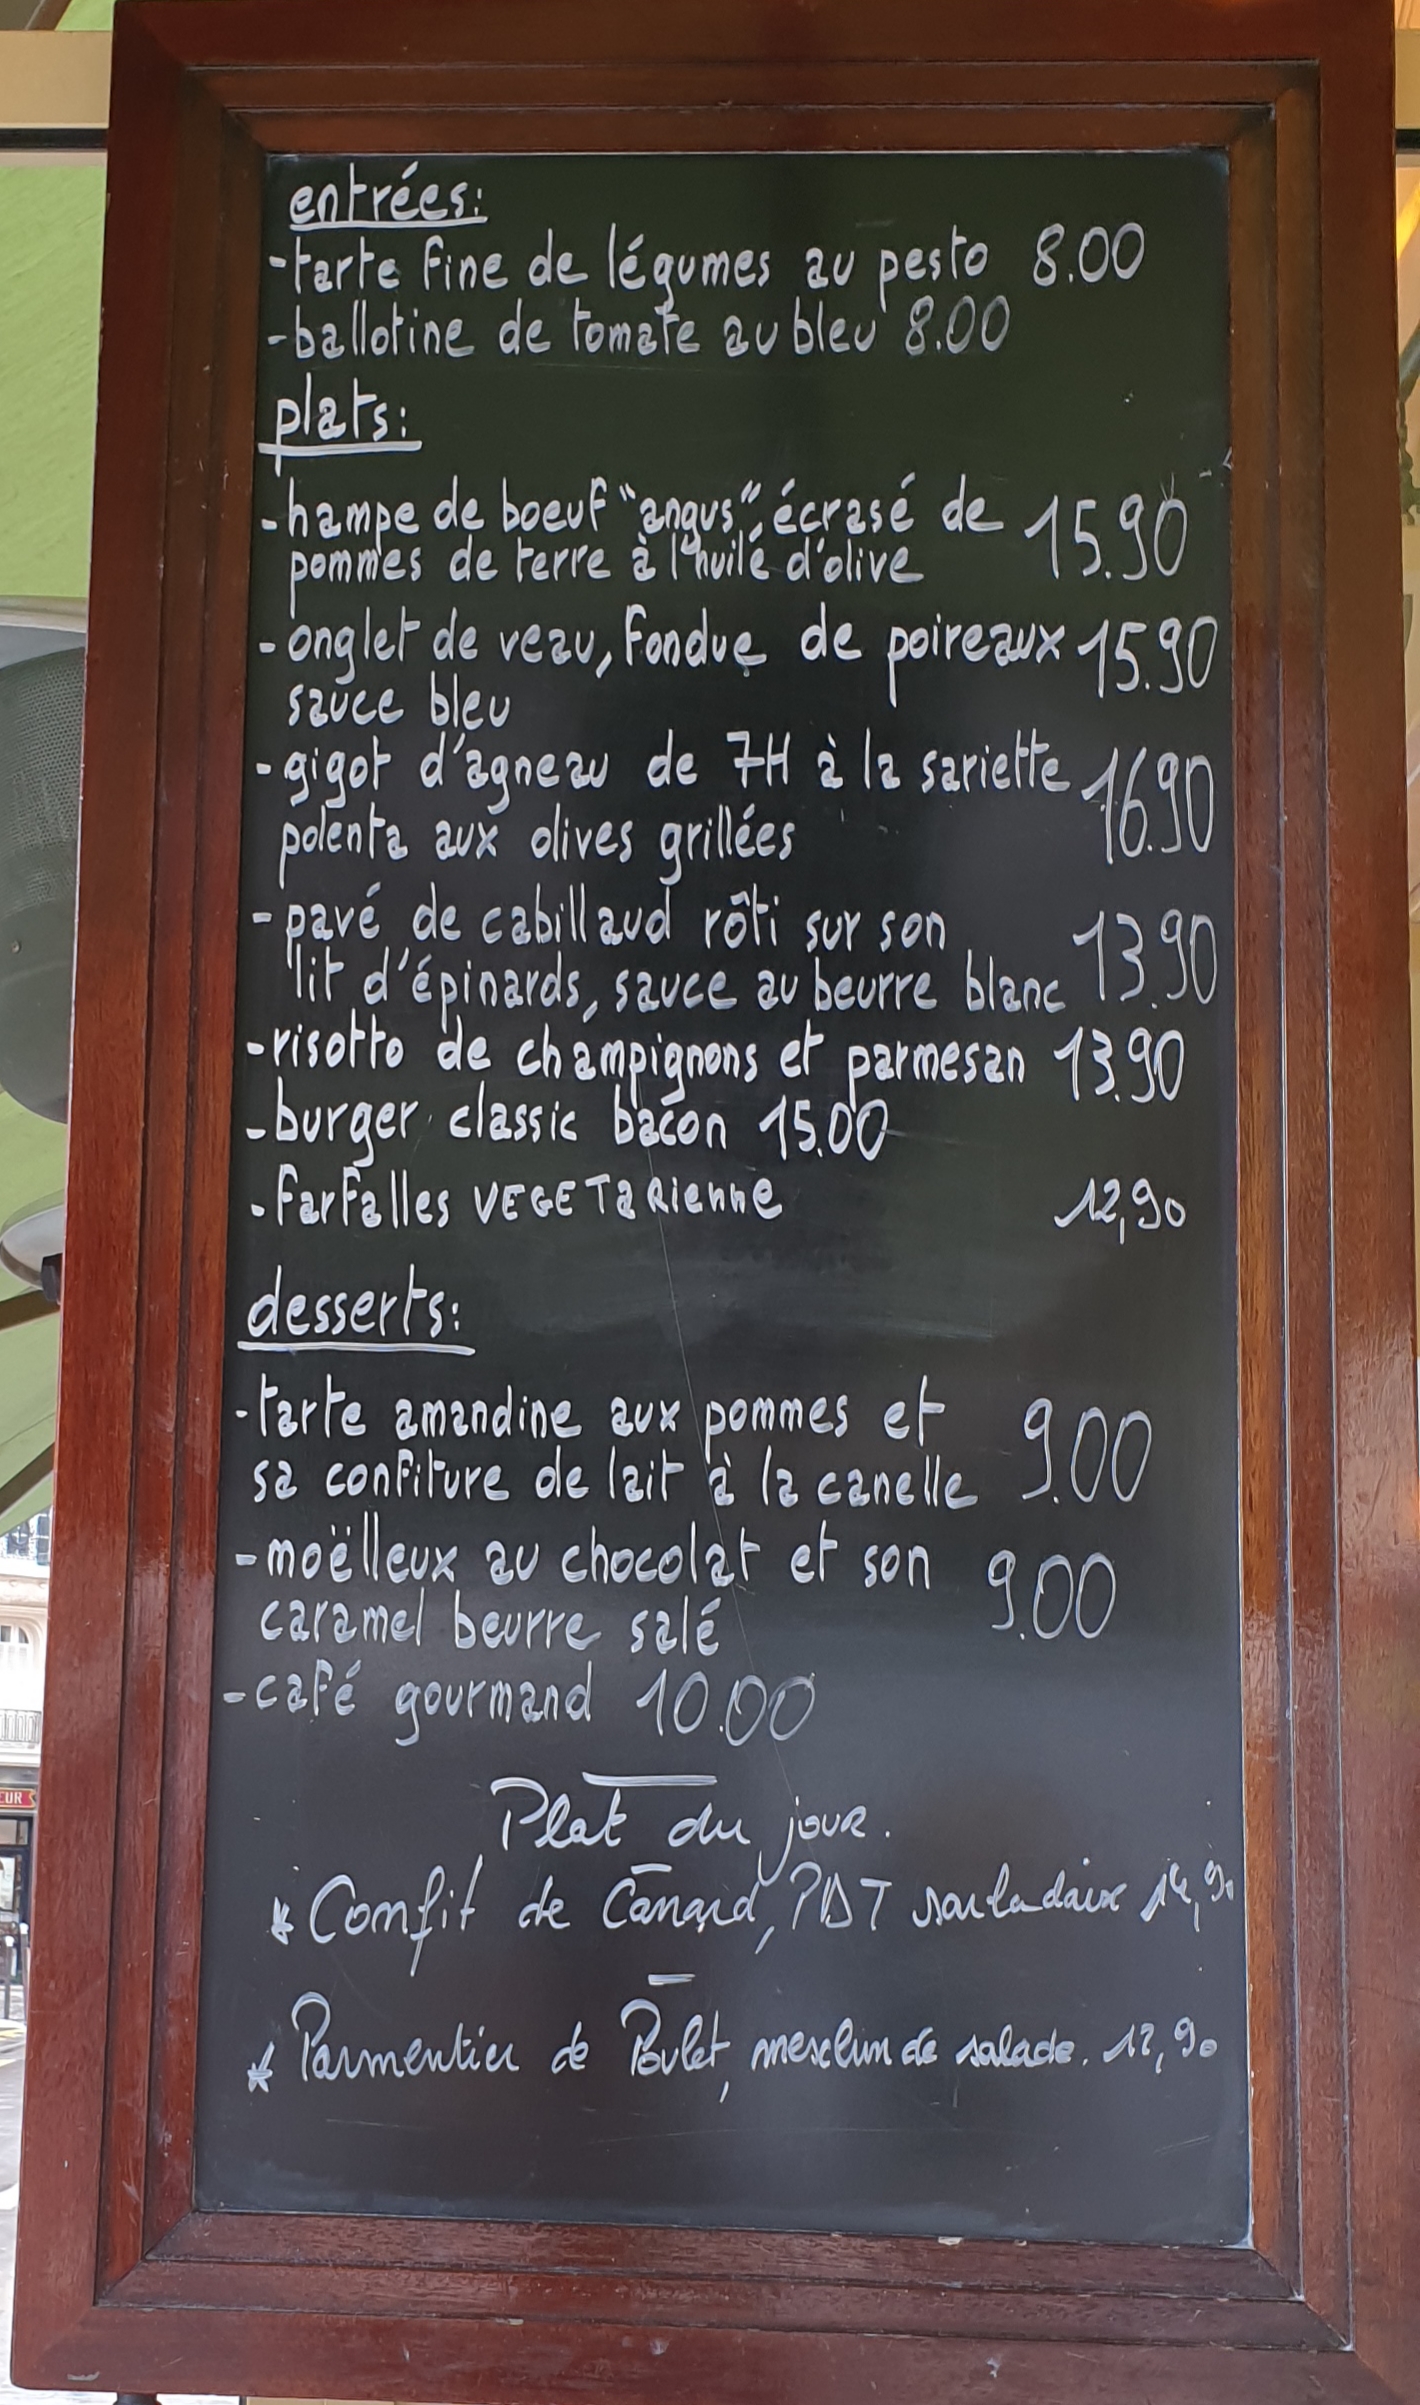 entrées:
-tarte fine de légumes au pesto 8.00
-ballotine de tomate au bleu 8.00
plats:
-hampe de boeuf "angus", écrasé de 15.90
pommes de terre à l'huile d'olive
-onglet de veau, fondue de poireaux 15.90
sauce bleu
-gigot d'agneau de 7H à la sariette 16.90
polenta aux olives grillées
-pavé de cabillaud rôti sur son 13.90
lit d'épinards, sauce au beurre blanc
-risotto de champignons et parmesan 13.90
-burger classic bacon 15.00
-farfalles VEGETaRienne 12,90
desserts:
-tarte amandine aux pommes et 9.00
sa confiture de lait à la canelle
-moëlleux au chocolat et son 9.00
caramel beurre salé
-café gourmand 10.00
Plat du jour.
* Confit de Canard, PDT sarladaise 14,90
* Parmentier de Poulet, mesclun de salade. 12,90
EUR